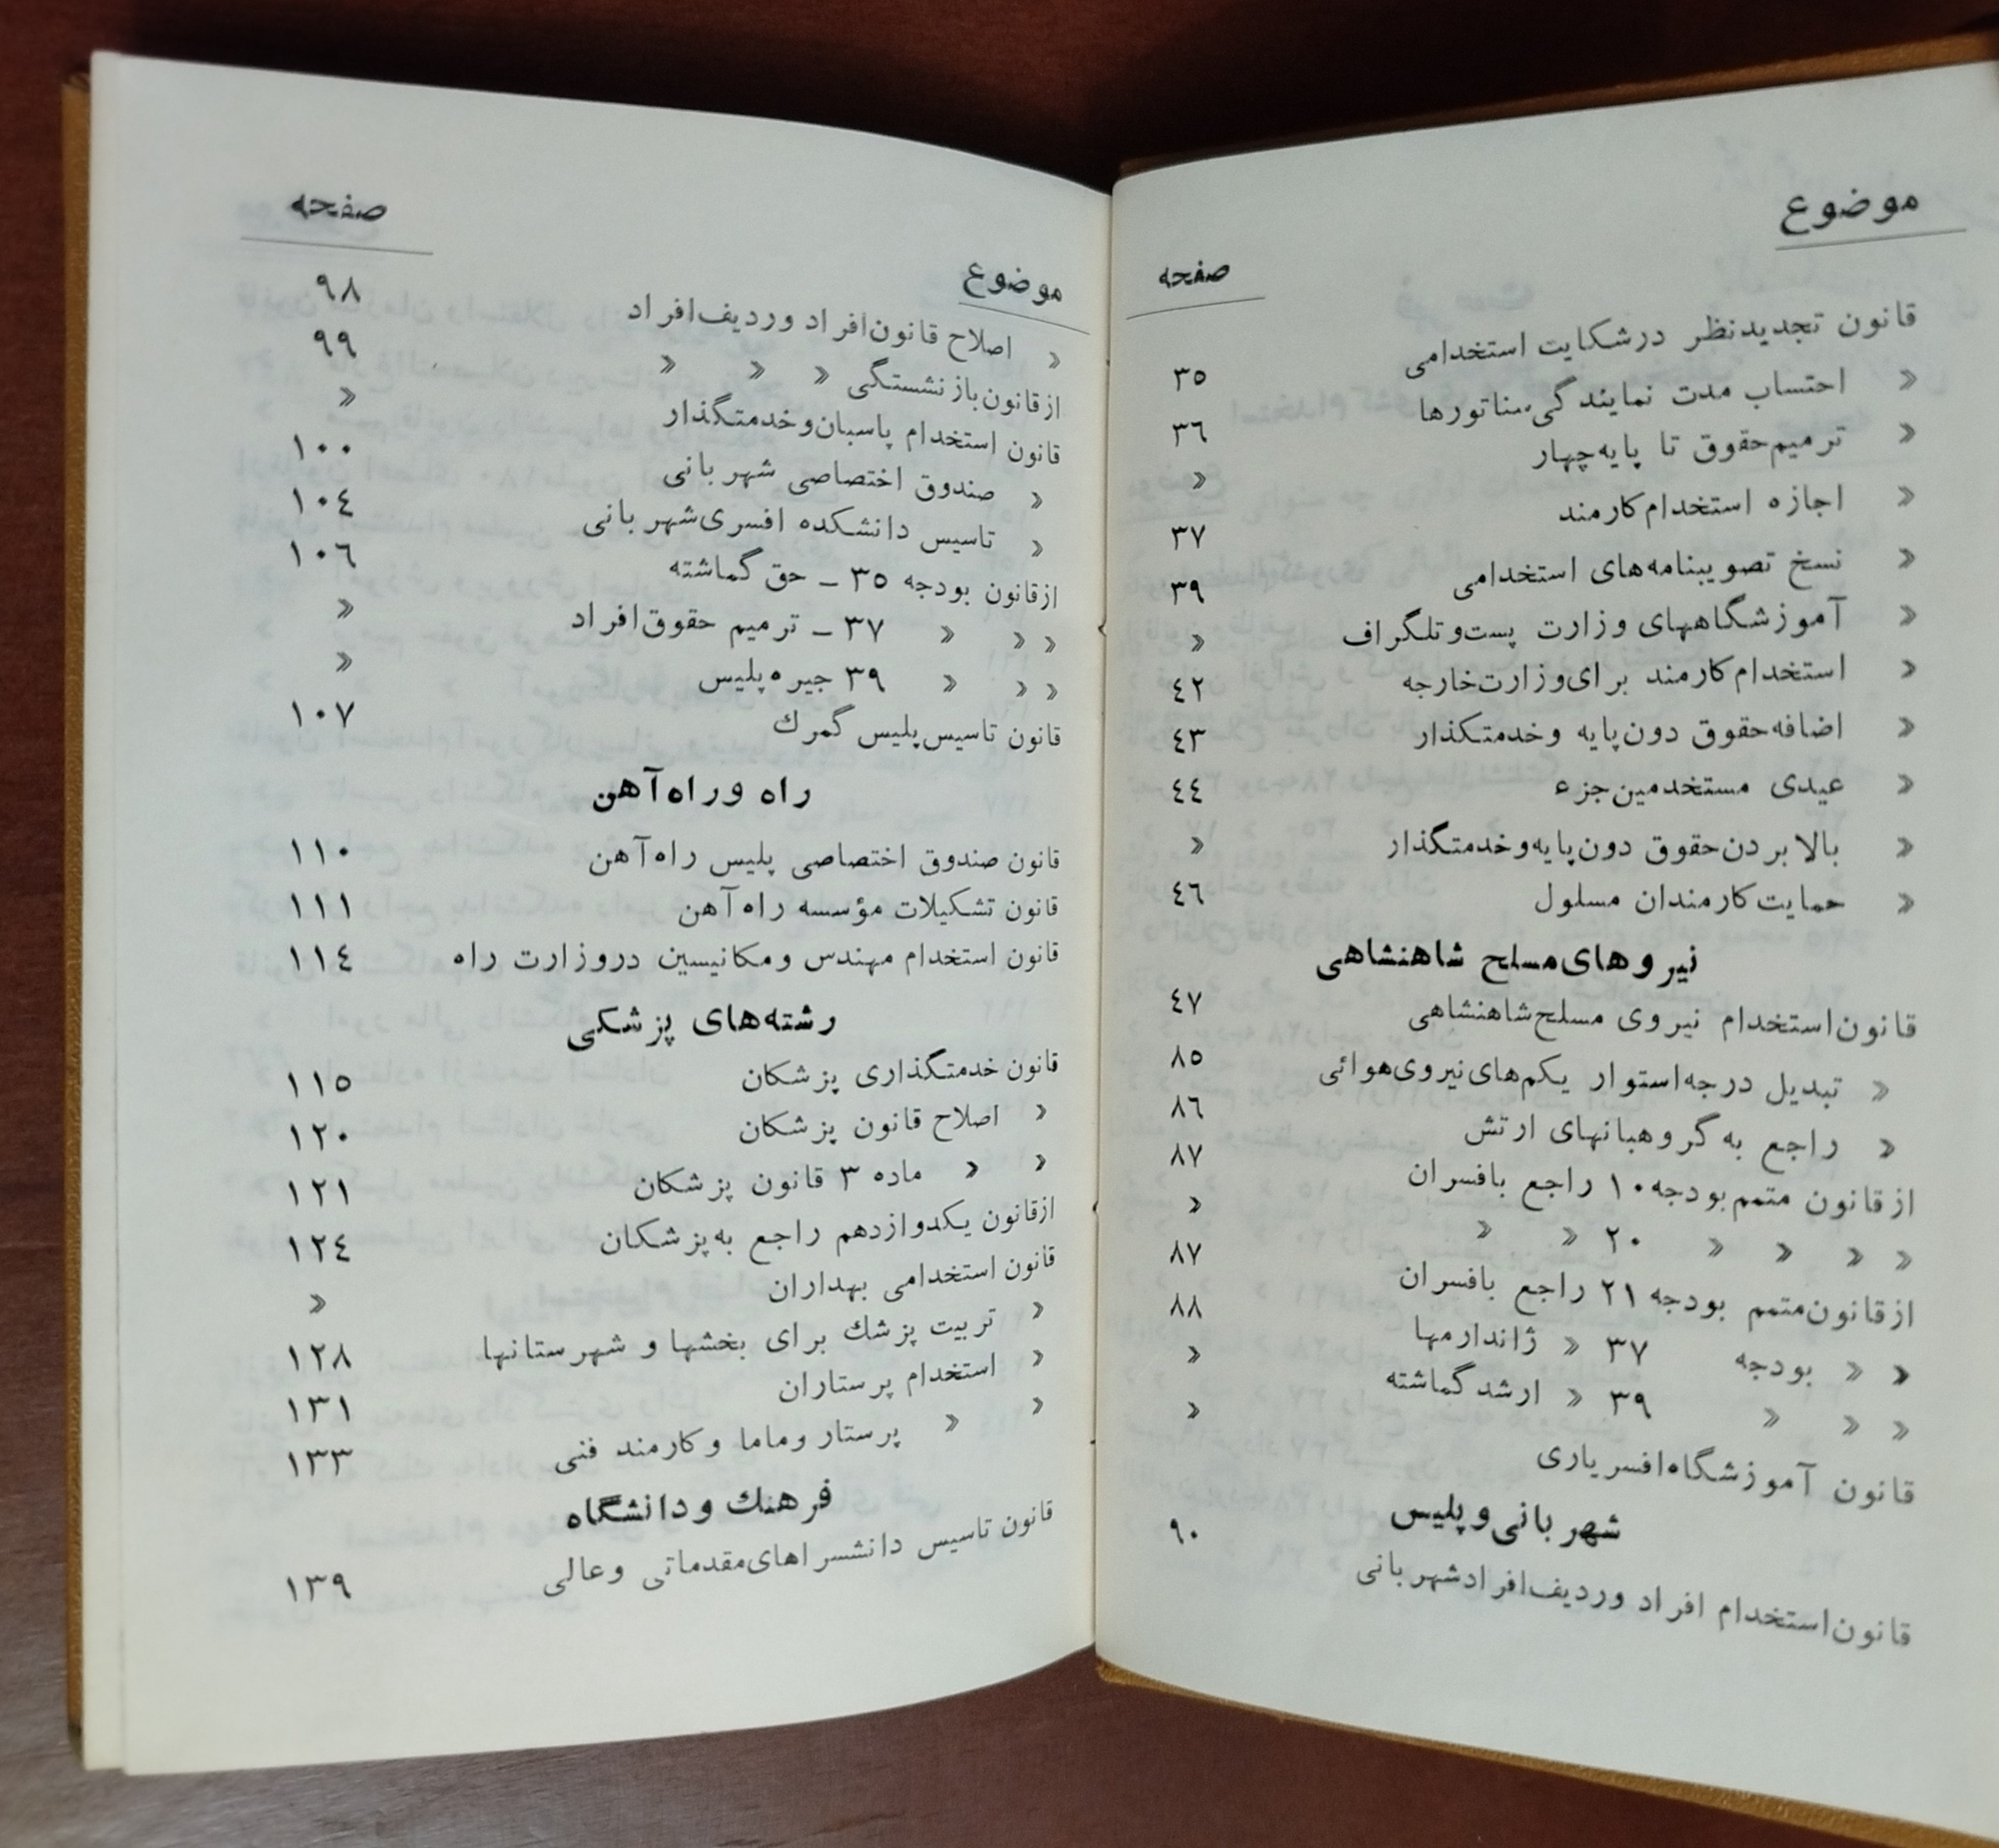 موضوع صفحه
قانون تجدیدنظر درشکایت استخدامی ۳۵
« احتساب مدت نمایندگی سناتورها ۳۶
« ترمیم‌حقوق تا پایه‌چهار «
« اجازه استخدام‌کارمند ۳۷
« نسخ تصویبنامه‌های استخدامی ۳۹
« آموزشگاههای وزارت پست‌وتلگراف «
« استخدام‌کارمند برای‌وزارت‌خارجه ۴۲
« اضافه‌حقوق دون‌پایه وخدمتکذار ۴۳
« عیدی مستخدمین‌جزء ۴۴
« بالابردن‌حقوق دون‌پایه‌وخدمتگذار «
« حمایت‌کارمندان مسلول ۴۶
نیروهای‌مسلح شاهنشاهی
قانون‌استخدام نیروی مسلح‌شاهنشاهی ۴۷
« تبدیل درجه‌استوار یکم‌های‌نیروی‌هوائی ۸۵
« راجع به‌گروهبانهای ارتش ۸۶
ازقانون متمم‌بودجه۱۰ راجع بافسران ۸۷
« « « « ۲۰ « « «
ازقانون‌متمم بودجه ۲۱ راجع بافسران ۸۷
« « بودجه ۳۷ « ژاندارمها ۸۸
« « « ۳۹ « ارشدگماشته «
قانون آموزشگاه‌افسریاری «
شهربانی‌وپلیس
قانون‌استخدام افراد وردیف‌افرادشهربانی ۹۰
موضوع صفحه
« اصلاح قانون‌افراد وردیف‌افراد ۹۸
ازقانون‌بازنشستگی « « « ۹۹
قانون استخدام پاسبان‌وخدمتگذار «
« صندوق اختصاصی شهربانی ۱۰۰
« تاسیس دانشکده افسری‌شهربانی ۱۰۴
ازقانون بودجه ۳۵ ـ حق گماشته ۱۰۶
« « « ۳۷ ـ ترمیم حقوق‌افراد «
« « « ۳۹ جیره‌پلیس «
قانون تاسیس‌پلیس گمرك ۱۰۷
راه وراه‌آهن
قانون صندوق اختصاصی پلیس راه‌آهن ۱۱۰
قانون تشکیلات مؤسسه راه‌آهن ۱۱۱
قانون استخدام مهندس ومکانیسین دروزارت راه ۱۱۴
رشته‌های پزشکی
قانون خدمتگذاری پزشکان ۱۱۵
« اصلاح قانون پزشکان ۱۲۰
« « ماده ۳ قانون پزشکان ۱۲۱
ازقانون یکدوازدهم راجع به‌پزشکان ۱۲۴
قانون استخدامی بهداران «
« تربیت پزشك برای بخشها و شهرستانها ۱۲۸
« استخدام پرستاران ۱۳۱
« « پرستار وماما وکارمند فنی ۱۳۳
فرهنك ودانشگاه
قانون تاسیس دانشسراهای‌مقدماتی وعالی ۱۳۹